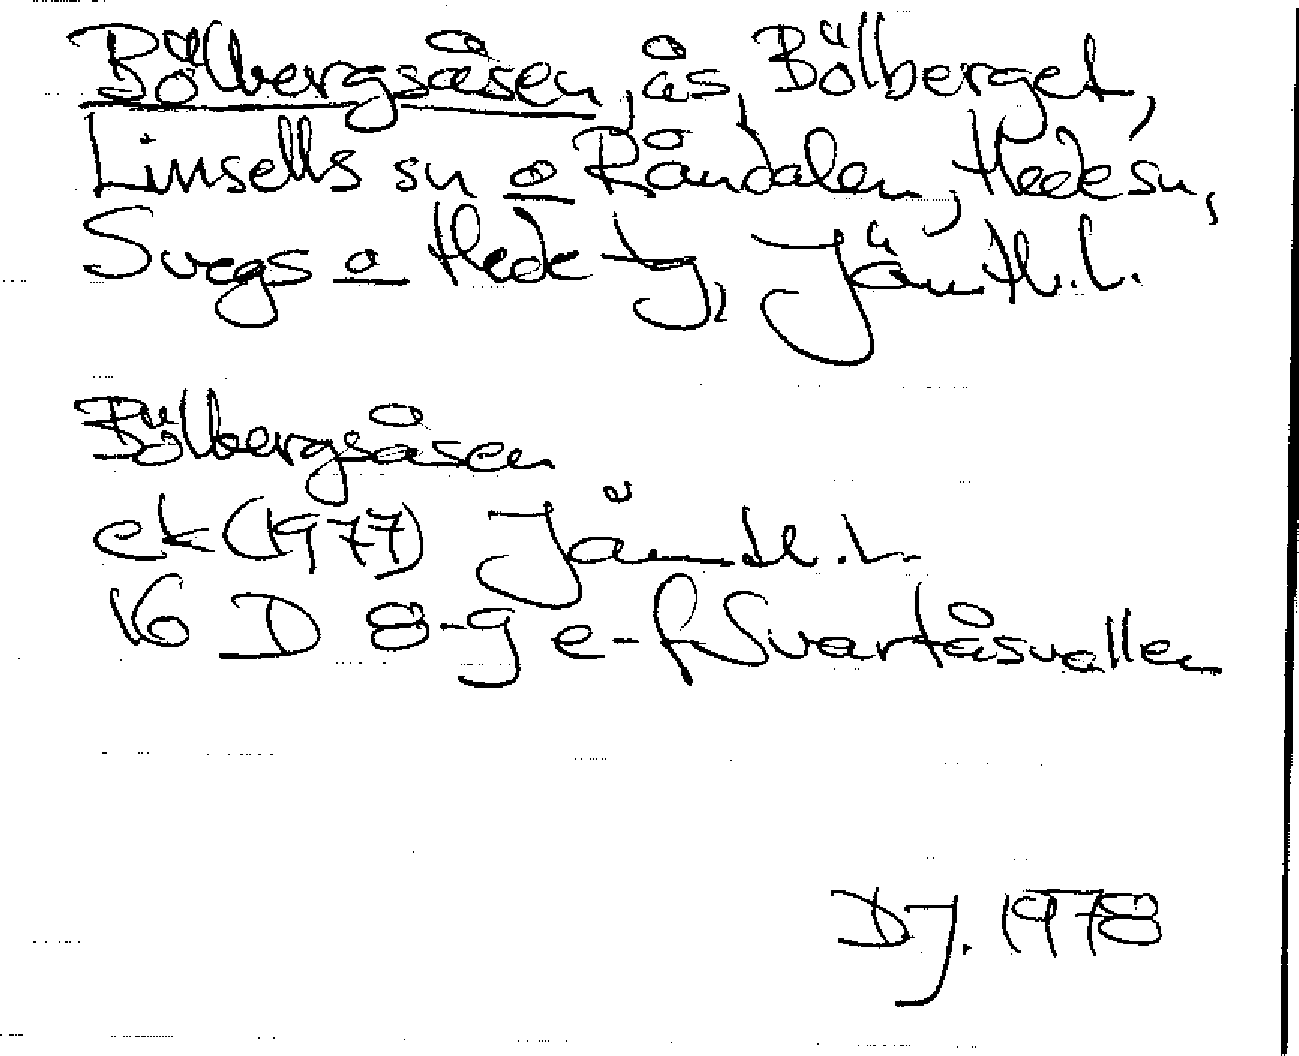 Bölbergsåsen, ås, Bölberget,
Linsells sn o Råndalen, Hede sn,
Svegs o Hede tg, Jämtl. l.
Bölbergsåsen
ek (1977) Jämtl. l.
16 D 8-9 e-f Svartåsvallen
DJ. 1978